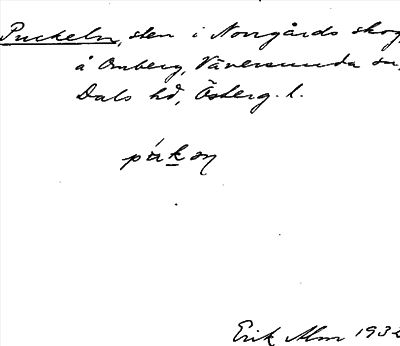 Puckeln, sten i Norrgårds skog,
å Omberg, Väversunda sn,
Dals hd, Österg. l.
Erik Alm 1932